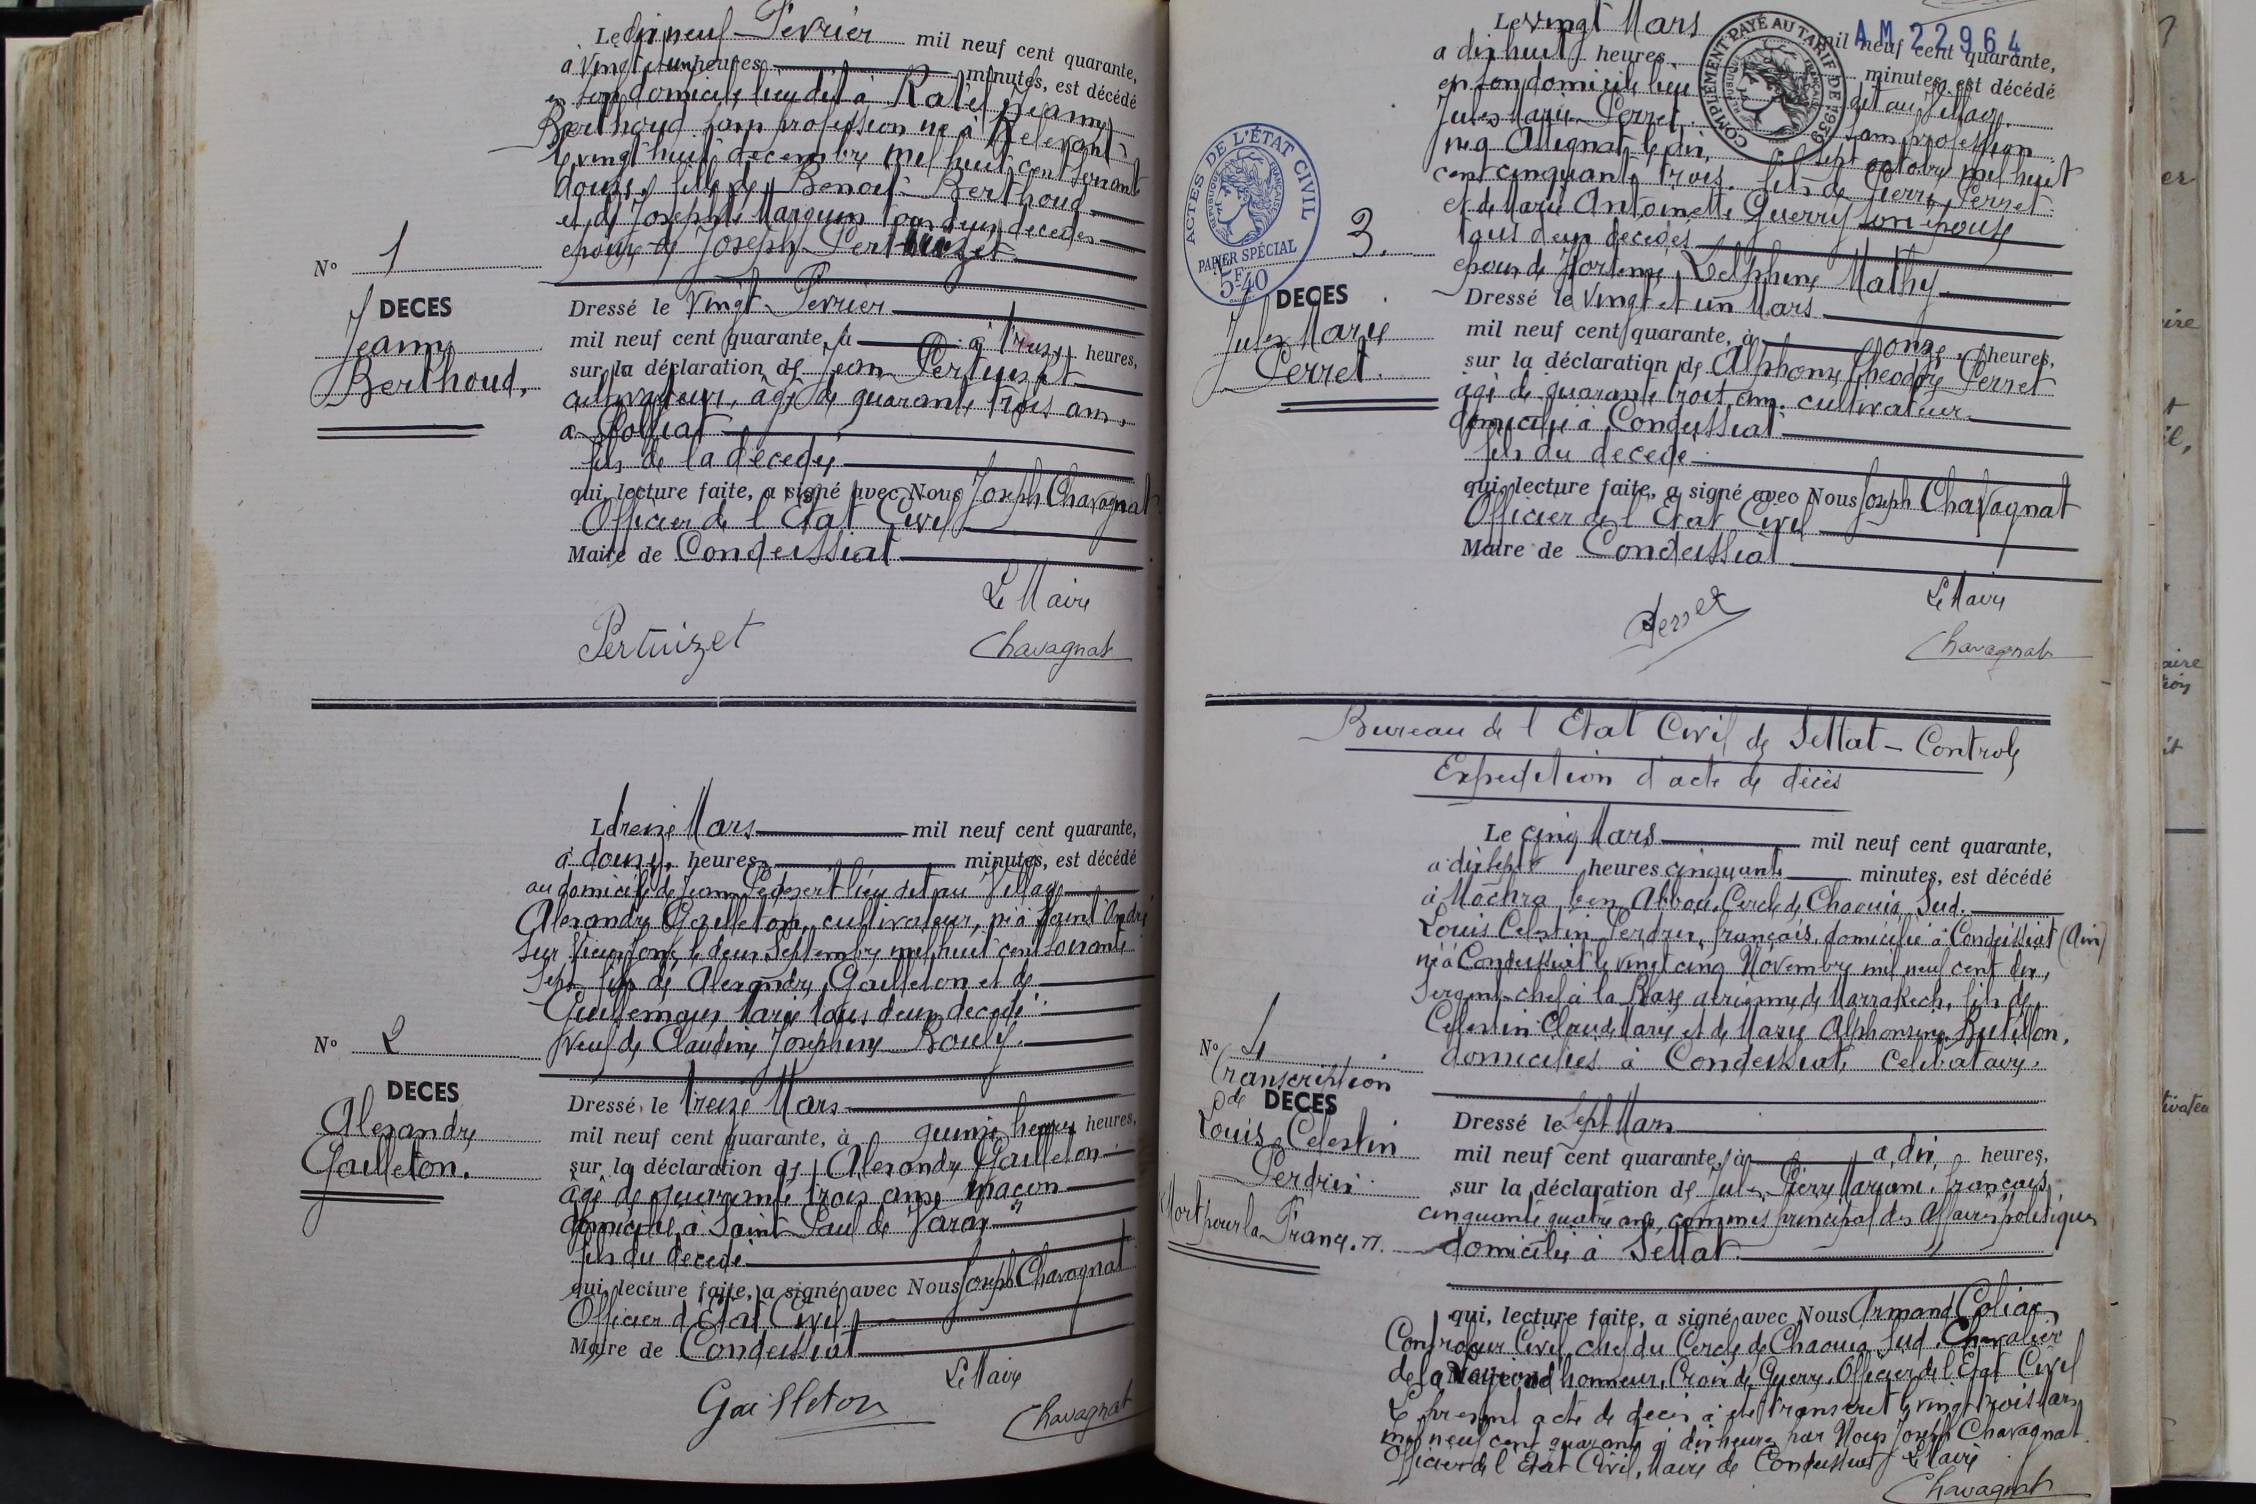 Le dix neuf Février mil neuf cent quarante,
à vingt et un heures minutes, est décédé
en son domicile lieu dit à Jeanne
Berthoud sans profession née à Relevant
le vingt huit décembre mil huit cent soixante
douze, fille de Benoit Berthoud
et de Josephte Marguin tous deux décédés
épouse de Joseph Pertuizet
N° 1
DECES
Jeanne
Berthoud.
Dressé le vingt Février
mil neuf cent quarante, à à treize heures,
sur la déclaration de Jean Pertuizet
cultivateur, âgé de quarante trois ans,
à Polliat
fils de la décédée
qui, lecture faite, a signé avec Nous Joseph Chavagnat
Officier de l'Etat Civil
Maire de Condeissiat
Le Maire
Pertuizet Chavagnat
Le treize Mars mil neuf cent quarante,
à douze heures minutes, est décédé
au domicile de Jean lieu dit au Village
Alexandre Gailleton, cultivateur, né à Saint André
sur Vieux Jonc, le deux Septembre mil huit cent soixante
sept, fils de Alexandre Gailleton et de
Marie tous deux décédés
Veuf de Claudine Josephine Bouly.
N° 2
DECES
Alexandre
Gailleton.
Dressé le treize Mars
mil neuf cent quarante, à quinze heures heures,
sur la déclaration de Alexandre Gailleton
âgé de quarante trois ans, maçon
domicilié à Saint Paul de Varax
fils du décédé
qui, lecture faite, a signé avec Nous Joseph Chavagnat
Officier d'Etat Civil
Maire de Condeissiat
Le Maire
Gailleton Chavagnat
AM 22964
COMPLÉMENT PAYÉ AU TARIF DE 1939
Le vingt Mars mil neuf cent quarante,
à dix huit heures minutes, est décédé
en son domicile lieu dit au Village
Jules Marie Perret sans profession
né à Attignat le dix sept octobre mil huit
cent cinquante trois, fils de Pierre Perret
et de Marie Antoinette Guerry son épouse
tous deux décédés
époux de Hortense Delphine Mathy
ACTES DE L'ÉTAT CIVIL
RÉPUBLIQUE FRANÇAISE
PAPIER SPÉCIAL
5F40
3.
DECES
Jules Marie
Perret.
Dressé le vingt et un Mars
mil neuf cent quarante, à onze heures,
sur la déclaration de Alphonse Théodore Perret
âgé de quarante trois ans, cultivateur
domicilié à Condeissiat
fils du décédé
qui, lecture faite, a signé avec Nous Joseph Chavagnat
Officier de l'Etat Civil
Maire de Condeissiat
Le Maire
Perret Chavagnat
Bureau de l'Etat Civil de Settat - Controle
Expedition d'acte de décès
Le cinq Mars mil neuf cent quarante,
à dix sept heures cinquante minutes, est décédé
à Mechra ben Abbou, Cercle de Chaouia Sud.
Louis Celestin Perdrix, français, domicilié à Condeissiat (Ain)
né à Condeissiat le vingt cinq Novembre mil neuf cent dix,
Sergent-chef à la Base aérienne de Marrakech, fils de
Celestin Claude Marie et de Marie Alphonsine Butillon,
domiciliés à Condeissiat, celibataire,
N° 4
Transcription
de
DECES
Louis Celestin
Perdrix
Mort pour la France. "
Dressé le sept Mars
mil neuf cent quarante, à à dix heures,
sur la déclaration de Jules Pierre Mariani, français,
cinquante quatre ans, commis principal des Affaires politiques
domicilié à Settat.
qui, lecture faite, a signé avec Nous Armand Coliac
Controleur Civil, chef du Cercle de Chaouia Sud, Chevalier
de la Légion d'honneur, Croix de Guerre, Officier de l'Etat Civil
Le présent acte de décès a été transcrit le vingt trois Mars
mil neuf cent quarante à dix heures par Nous Joseph Chavagnat
Officier de l'Etat Civil, Maire de Condeissiat Le Maire
Chavagnat